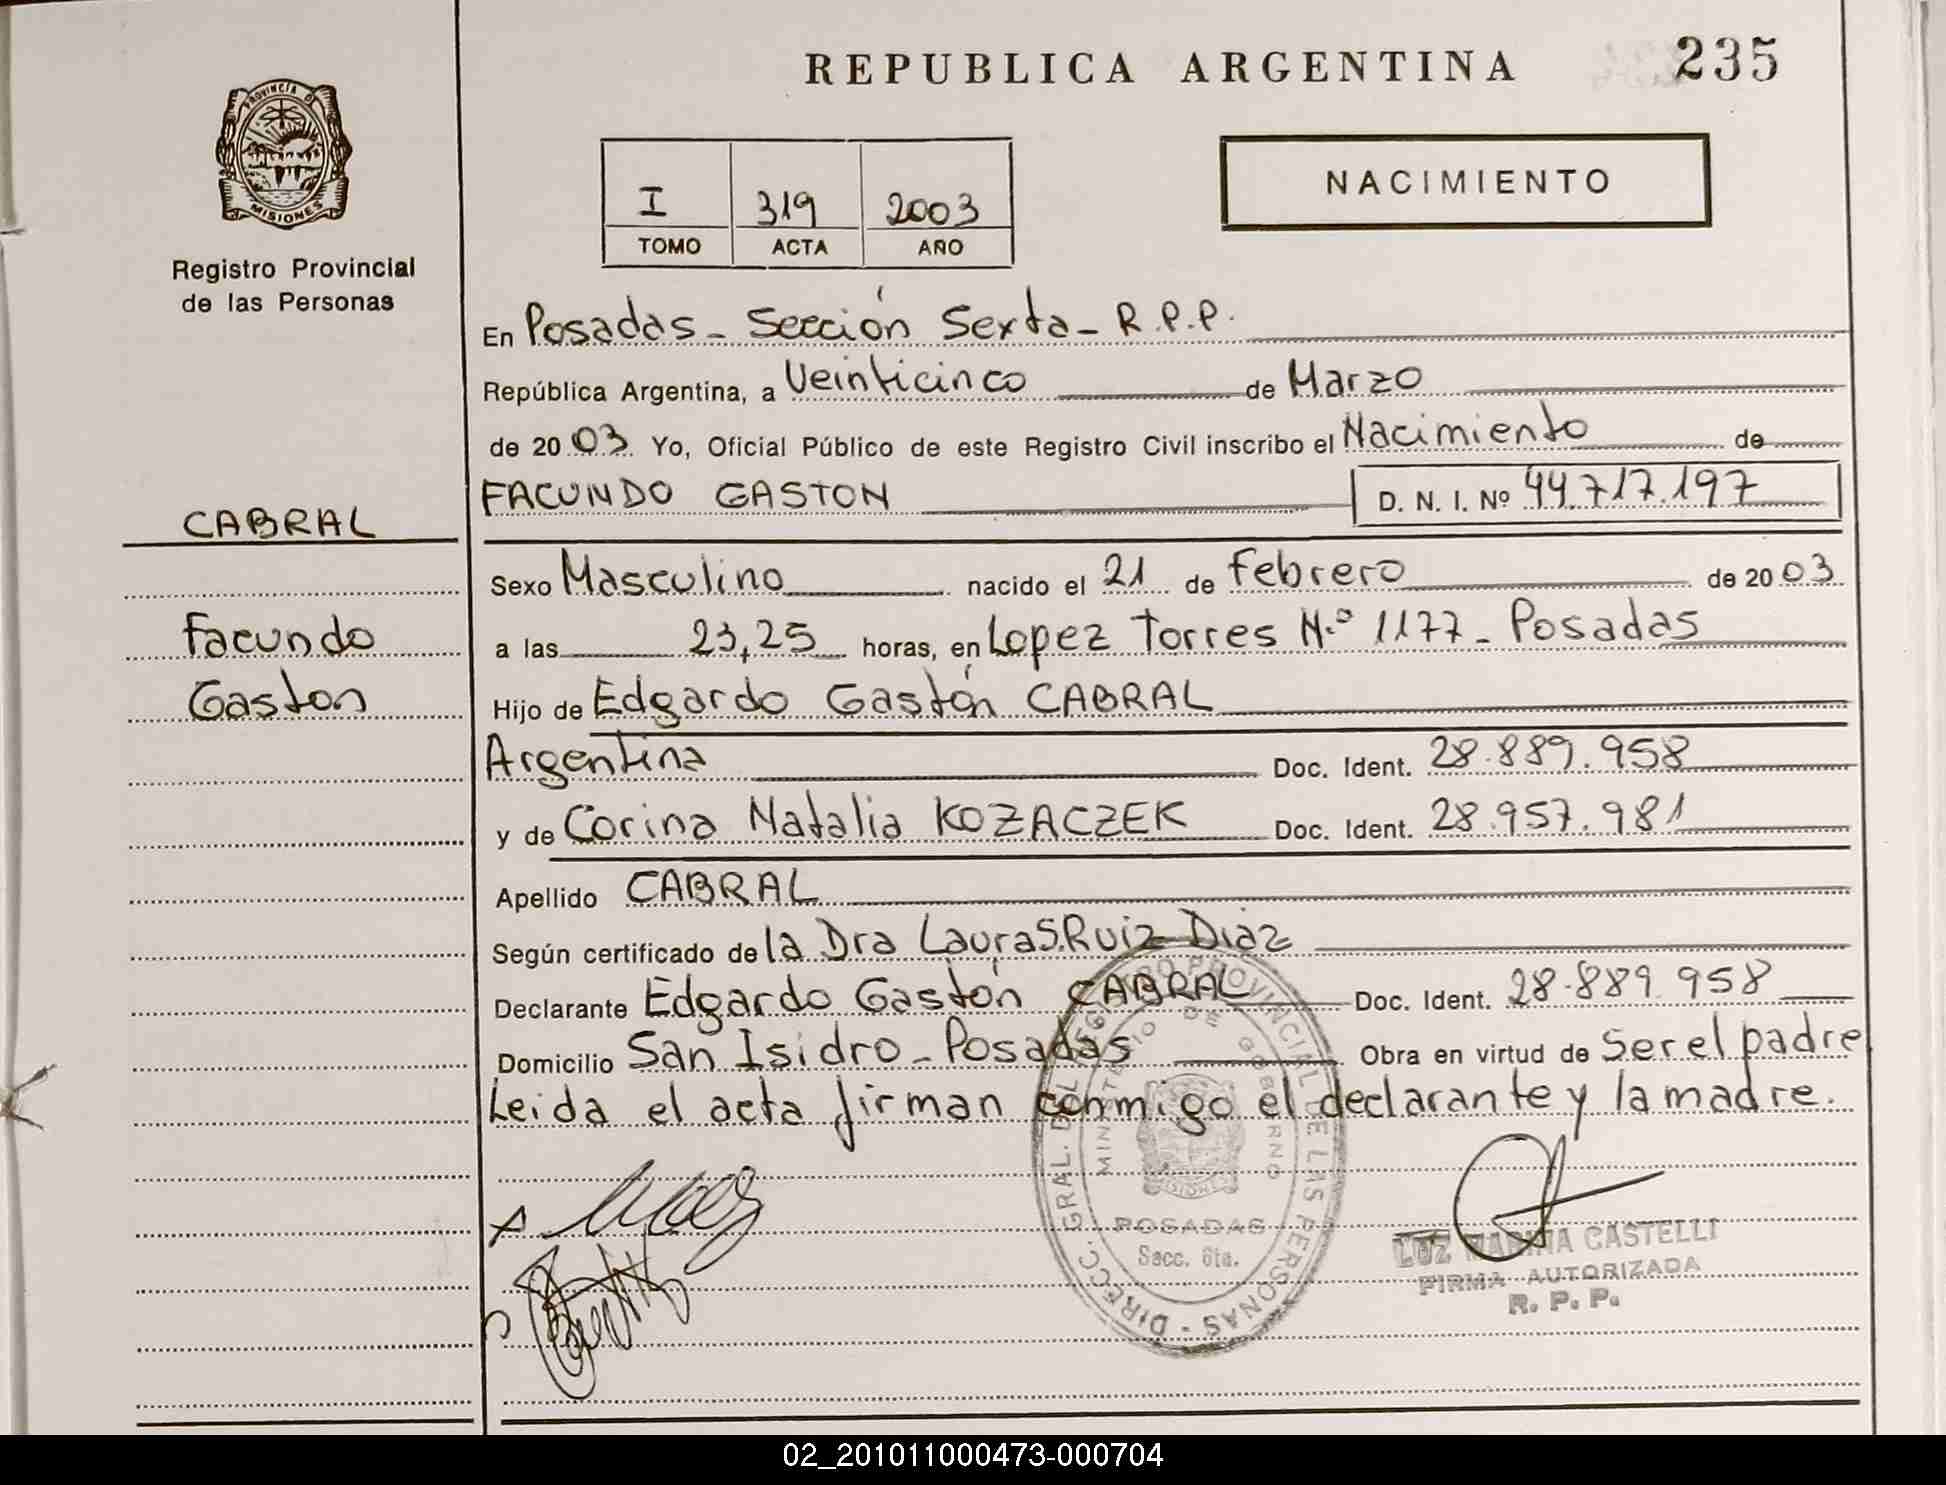 REPUBLICA ARGENTINA 235
PROVINCIA DE
MISIONES
Registro Provincial
de las Personas
I 319 2003
TOMO ACTA AÑO
NACIMIENTO
En Posadas - Sección Sexta - R.P.P.
República Argentina, a Veinticinco de Marzo
de 2003. Yo, Oficial Público de este Registro Civil inscribo el Nacimiento de
FACUNDO GASTON D. N. I. Nº 44.717.197
CABRAL
Facundo
Gaston
Sexo Masculino nacido el 21 de Febrero de 2003
a las 23,25 horas, en Lopez Torres N.º 1177 - Posadas
Hijo de Edgardo Gastón CABRAL
Argentina Doc. Ident. 28.889.958
y de Corina Natalia KOZACZEK Doc. Ident. 28.957.981
Apellido CABRAL
Según certificado de la Dra Laura S. Ruiz Diaz
Declarante Edgardo Gastón CABRAL Doc. Ident. 28.889.958
Domicilio San Isidro - Posadas Obra en virtud de ser el padre
Leida el acta firman conmigo el declarante y la madre.
DIRECC. GRAL. DEL REGISTRO PROVINCIAL DE LAS PERSONAS -
MINISTERIO DE GOBIERNO
MISIONES
POSADAS
Secc. 6ta.
LUZ MARINA CASTELLI
FIRMA AUTORIZADA
R. P. P.
02_201011000473-000704